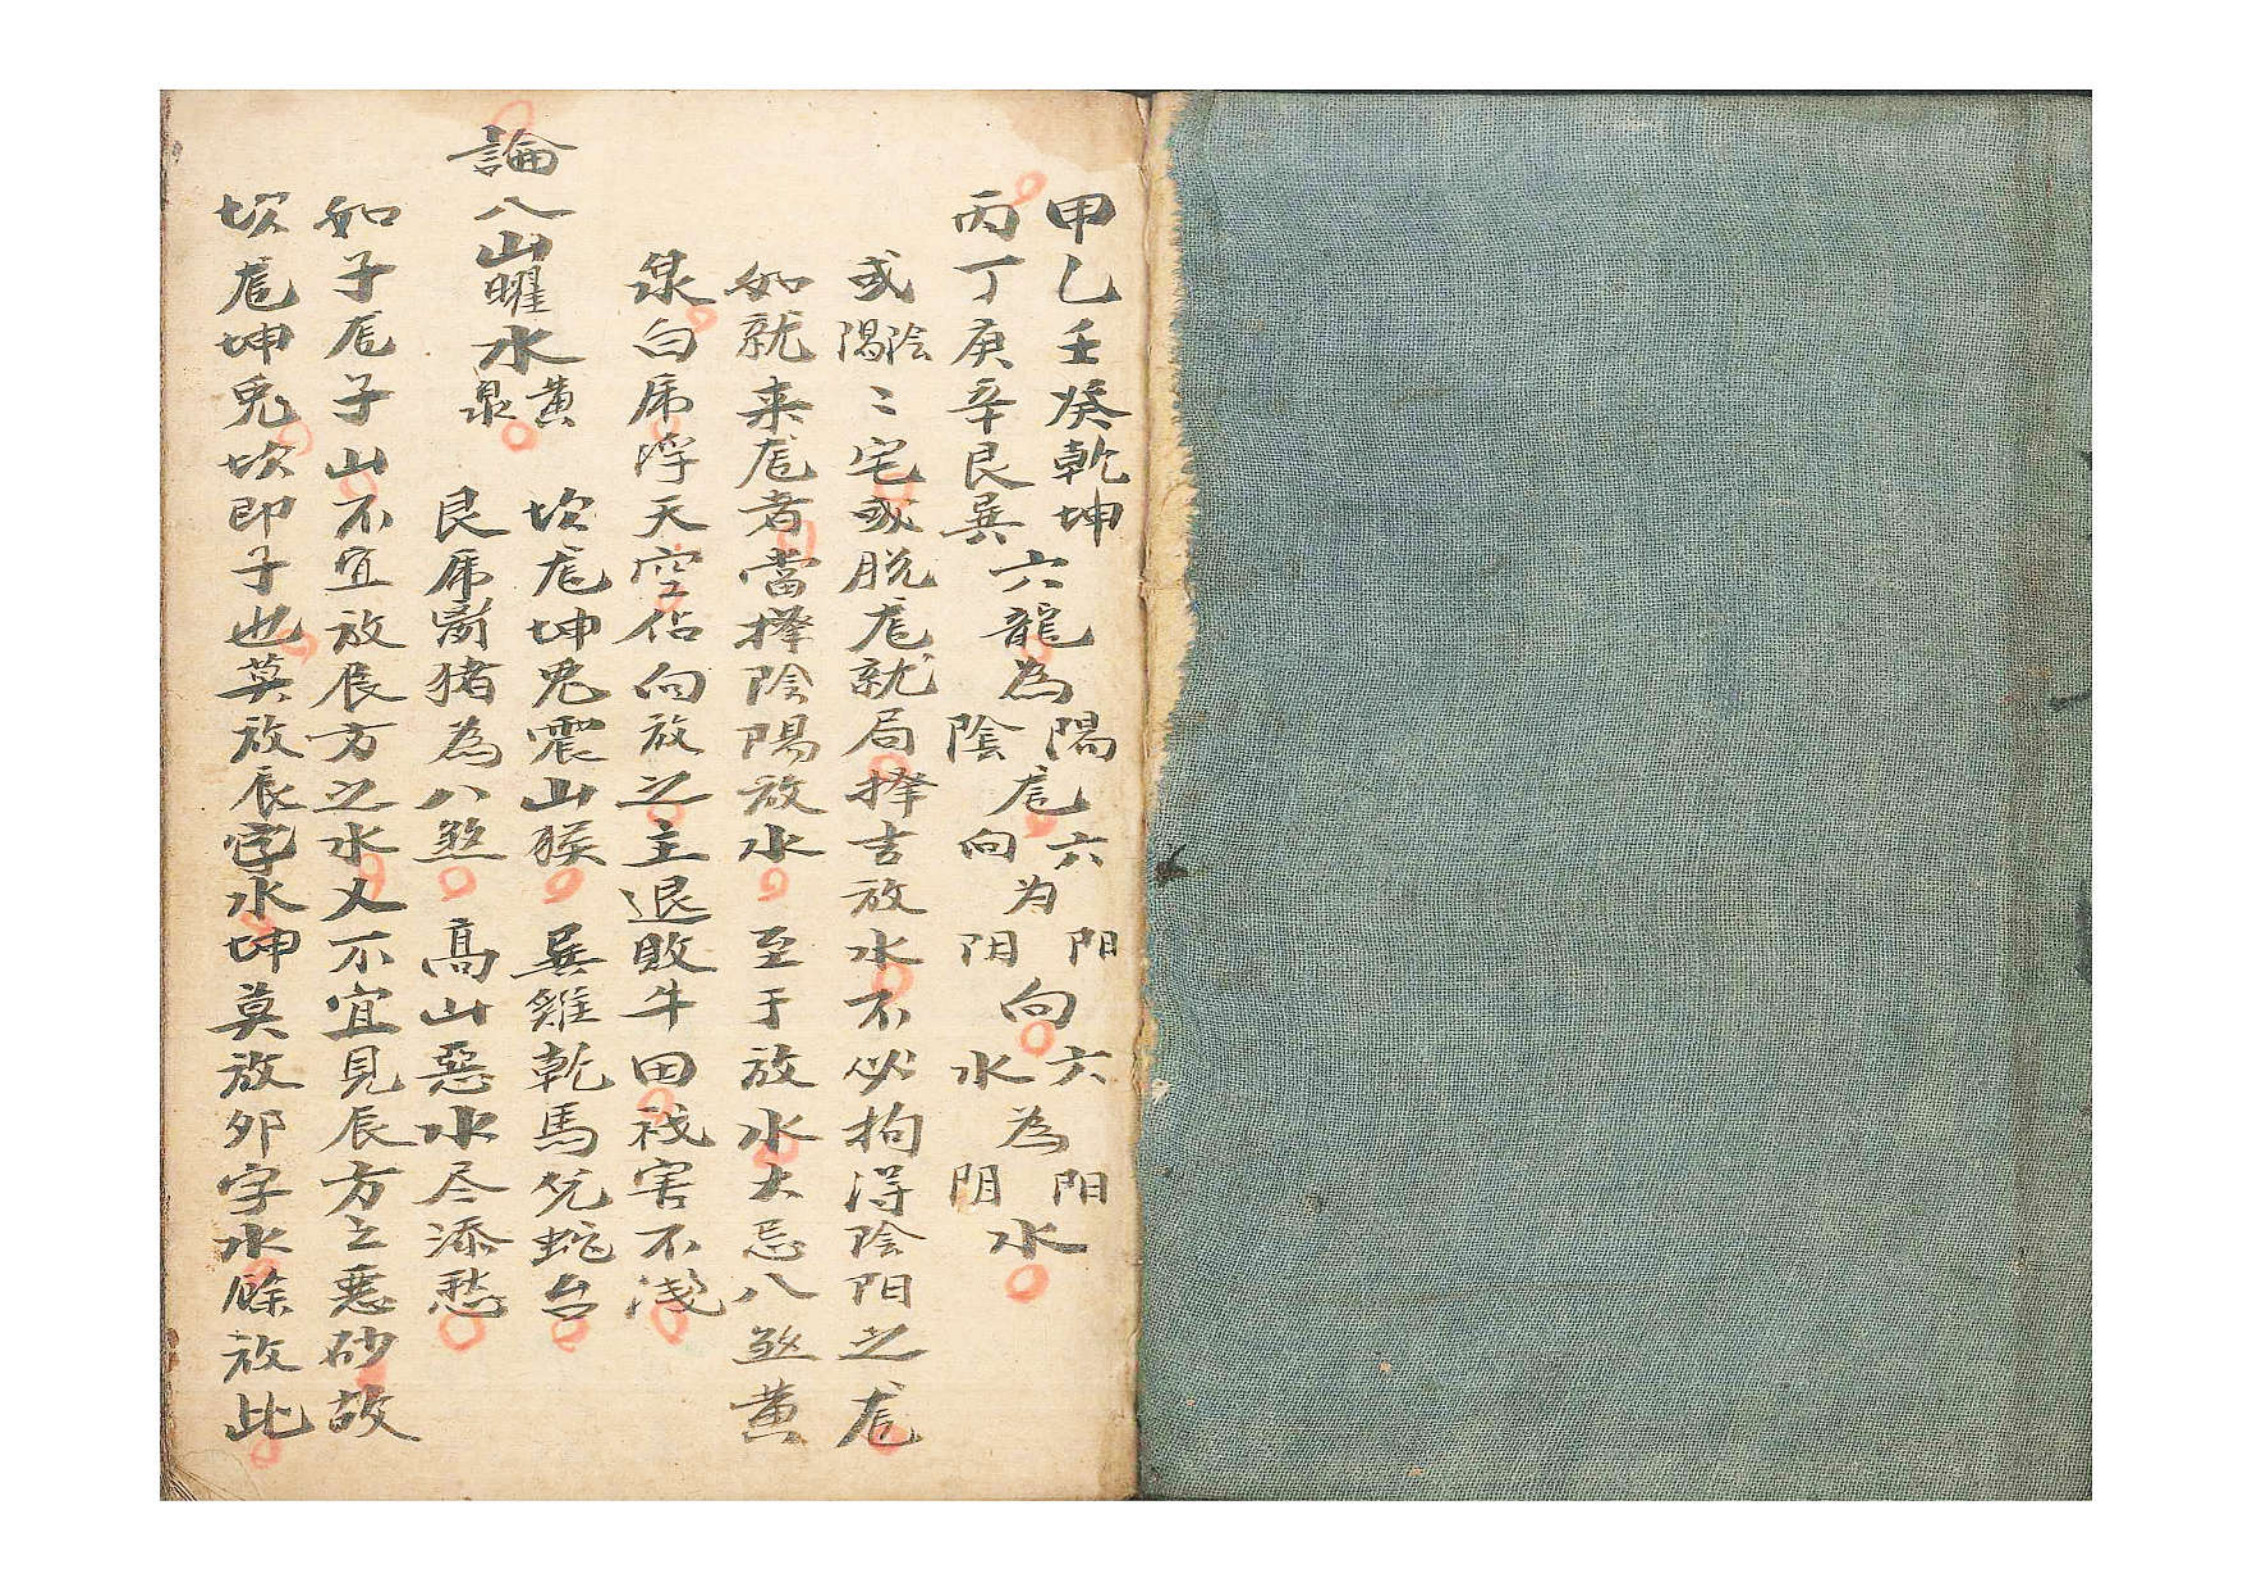 甲乙壬癸乾坤
丙丁庚辛艮巽
六龍為
陽
陰
尨
六
向
为
阳
阴
向
六
水
為
阳
阴
水
或陰陽〻宅或脱尨就局擇吉放水不必拘淂陰阳之尨
如就来尨者當擇陰陽放水至于放水大忌八煞黄
泉白虎浮天空侣向放之主退敗牛田祸害不淺
論八山曜水黄泉
坎尨坤兎震山猴巽雞乾馬兊蛇台
艮虎离猪為八煞高山惡水尽添愁
如子尨子山不宜放辰方之水又不宜見辰方上惡砂故
坎尨坤兎坎即子也莫放辰字水坤莫放卯字水餘放此